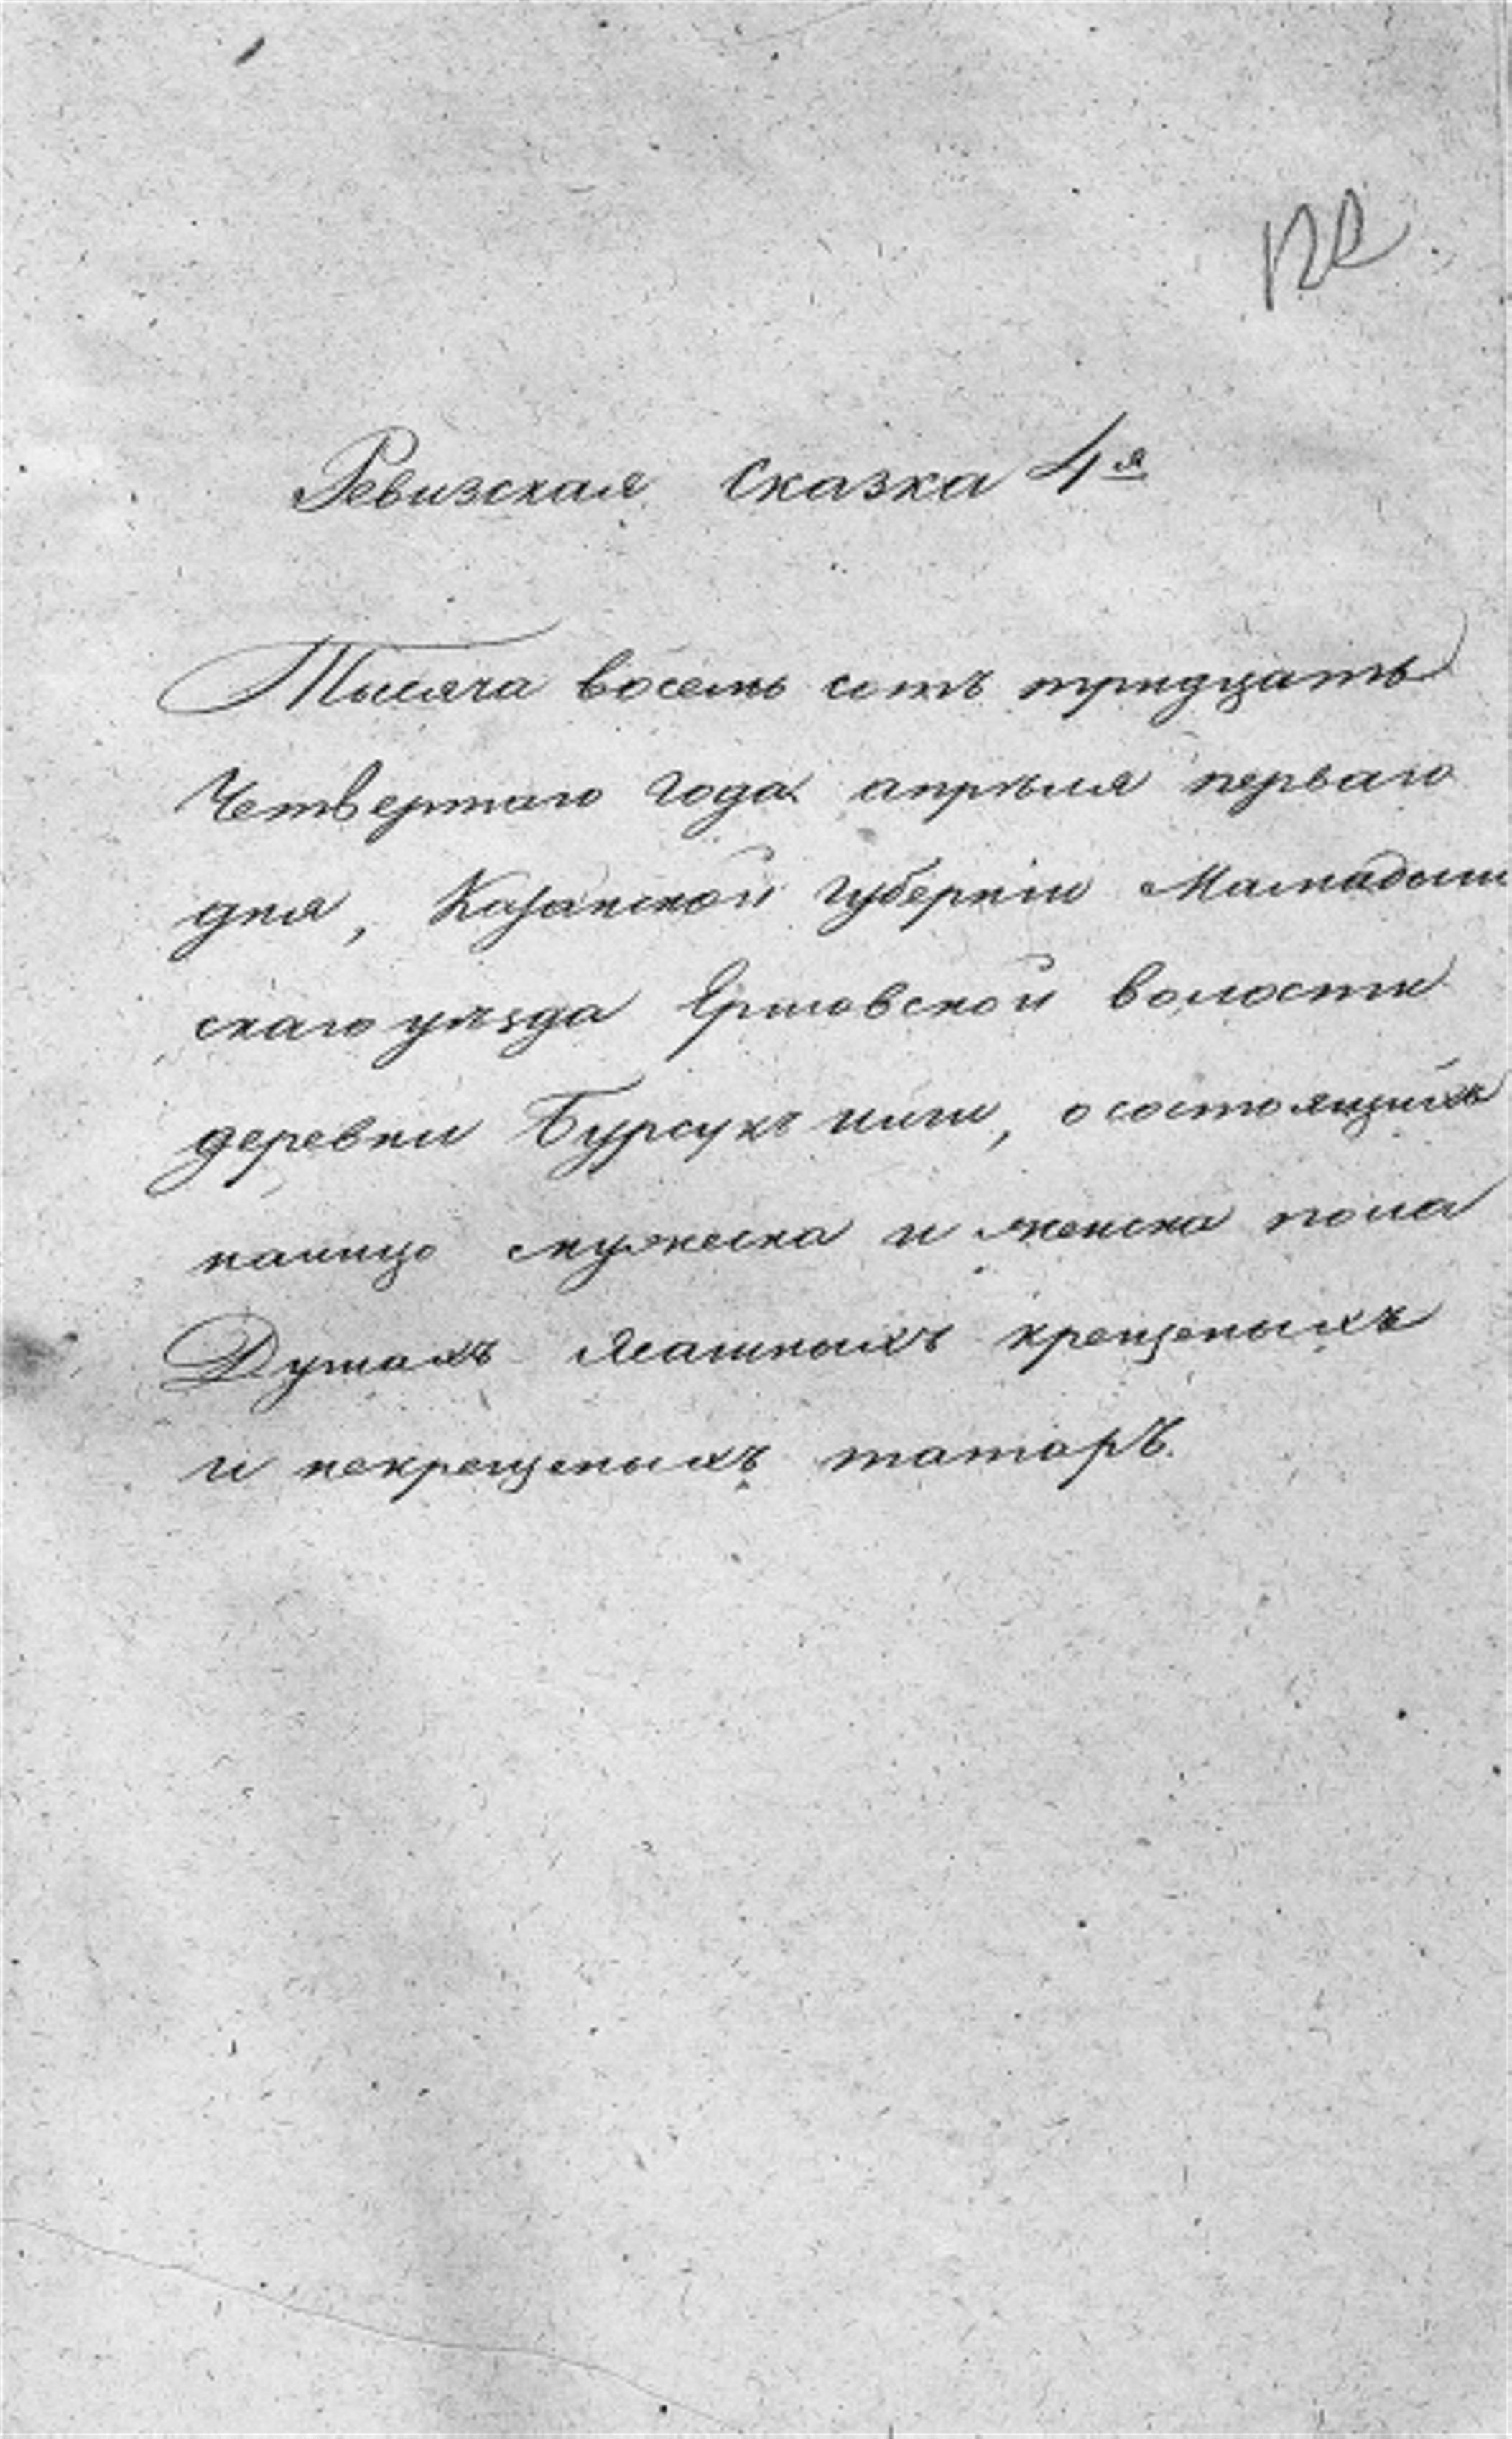 122
Ревизская сказка 4я
Тысяча восемь сотъ тридцать
четвертаго года апрѣля перваго
дня, Казанской губерніи Мамадыш
скаго уѣзда Ершовской волости
деревни Бурсукъ или, о состоящихъ
налицо мужеска и женска пола
Душахъ Ясашныхъ крещеныхъ
и некрещеныхъ татаръ.